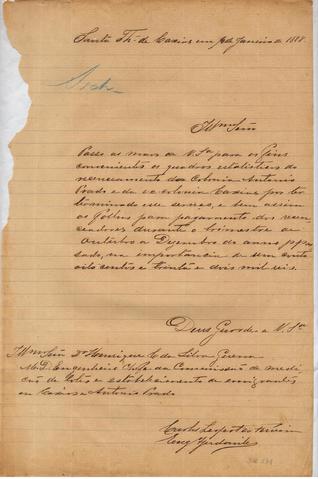 Santa Th.ª de Caxias em de Janeiro de 1888
Illmo Snr
Passo as mãos de V. Sª para os fins
convenientes os quadros estatisticos do
recenceamento da Colonia Antonio
Prado e da ex colonia Caxias por ter
terminado esse serviço, e bem assim
as folhas para pagamento dos recen
ceadores durante o trimestre de
Outubro a Dezembro do anno pas
sado, na importancia de um conto
oito centos e trinta e dois mil reis.
Deus Guarde a V. Sª
Illmo Snr Dr Henrique C. da Silva
M. D. Engenheiro Chefe da Commissão de medi
ção de lotes e estabelecimento de emigrantes
em Caxias e Antonio Prado
Carlos
Eng Ajudante